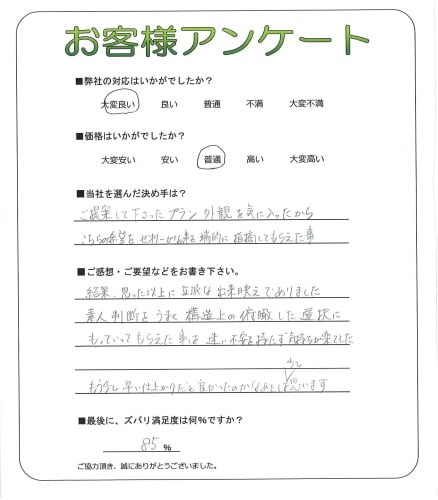 お客様アンケート
■弊社の対応はいかがでしたか？
大変良い 良い 普通 不満 大変不満
■価格はいかがでしたか？
大変安い 安い 普通 高い 大変高い
■当社を選んだ決め手は？
ご提案して下さったプラン 外観を気に入ったから
こちらの希望を 出来る 端的に 指摘してもらえた事
■ご感想・ご要望などをお書き下さい。
結果、思った以上に立派な出来映えでありました
素人判断をうまく 構造上の俯瞰した選択に
もっていってもらえた事は 迷い不安を持たず気持ちが楽でした
少し
もう少し早い仕上がりだと良かったのかなぁとは思います
■最後に、ズバリ満足度は何%ですか？
85 %
ご協力頂き、誠にありがとうございました。